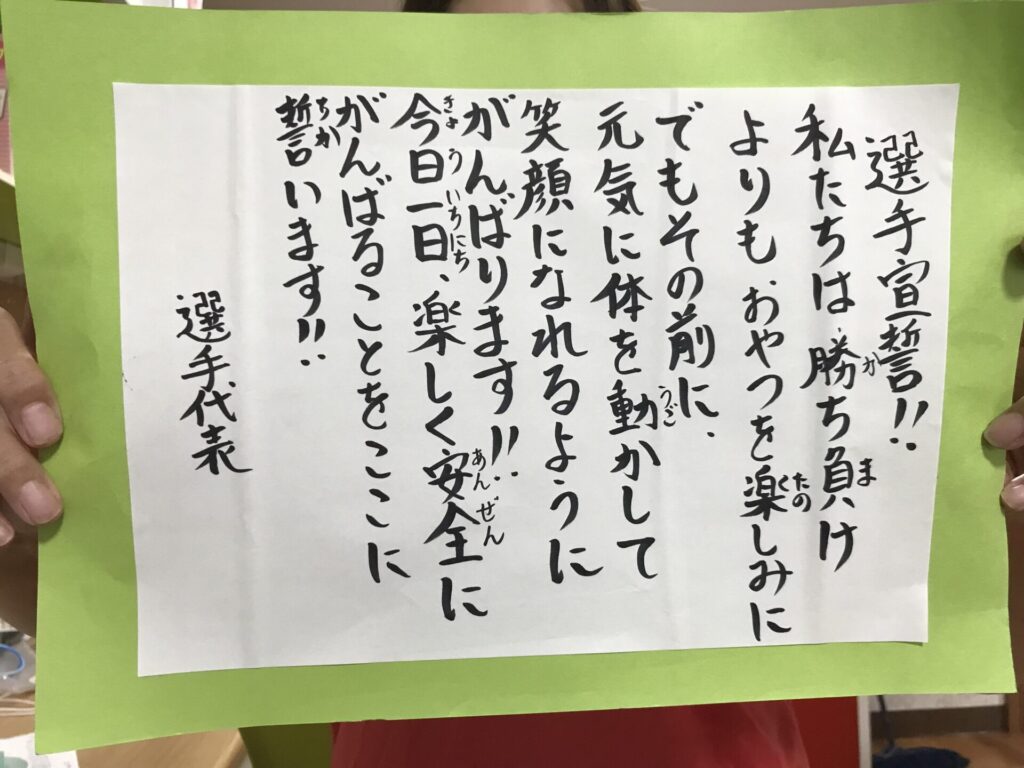 選手宣誓!!
私たちは勝ち負け
よりもおやつを楽しみに
でもその前に、
元気に体を動かして
笑顔になれるように
がんばります!!
今日一日、楽しく安全に
がんばることをここに
誓います!!
選手代表